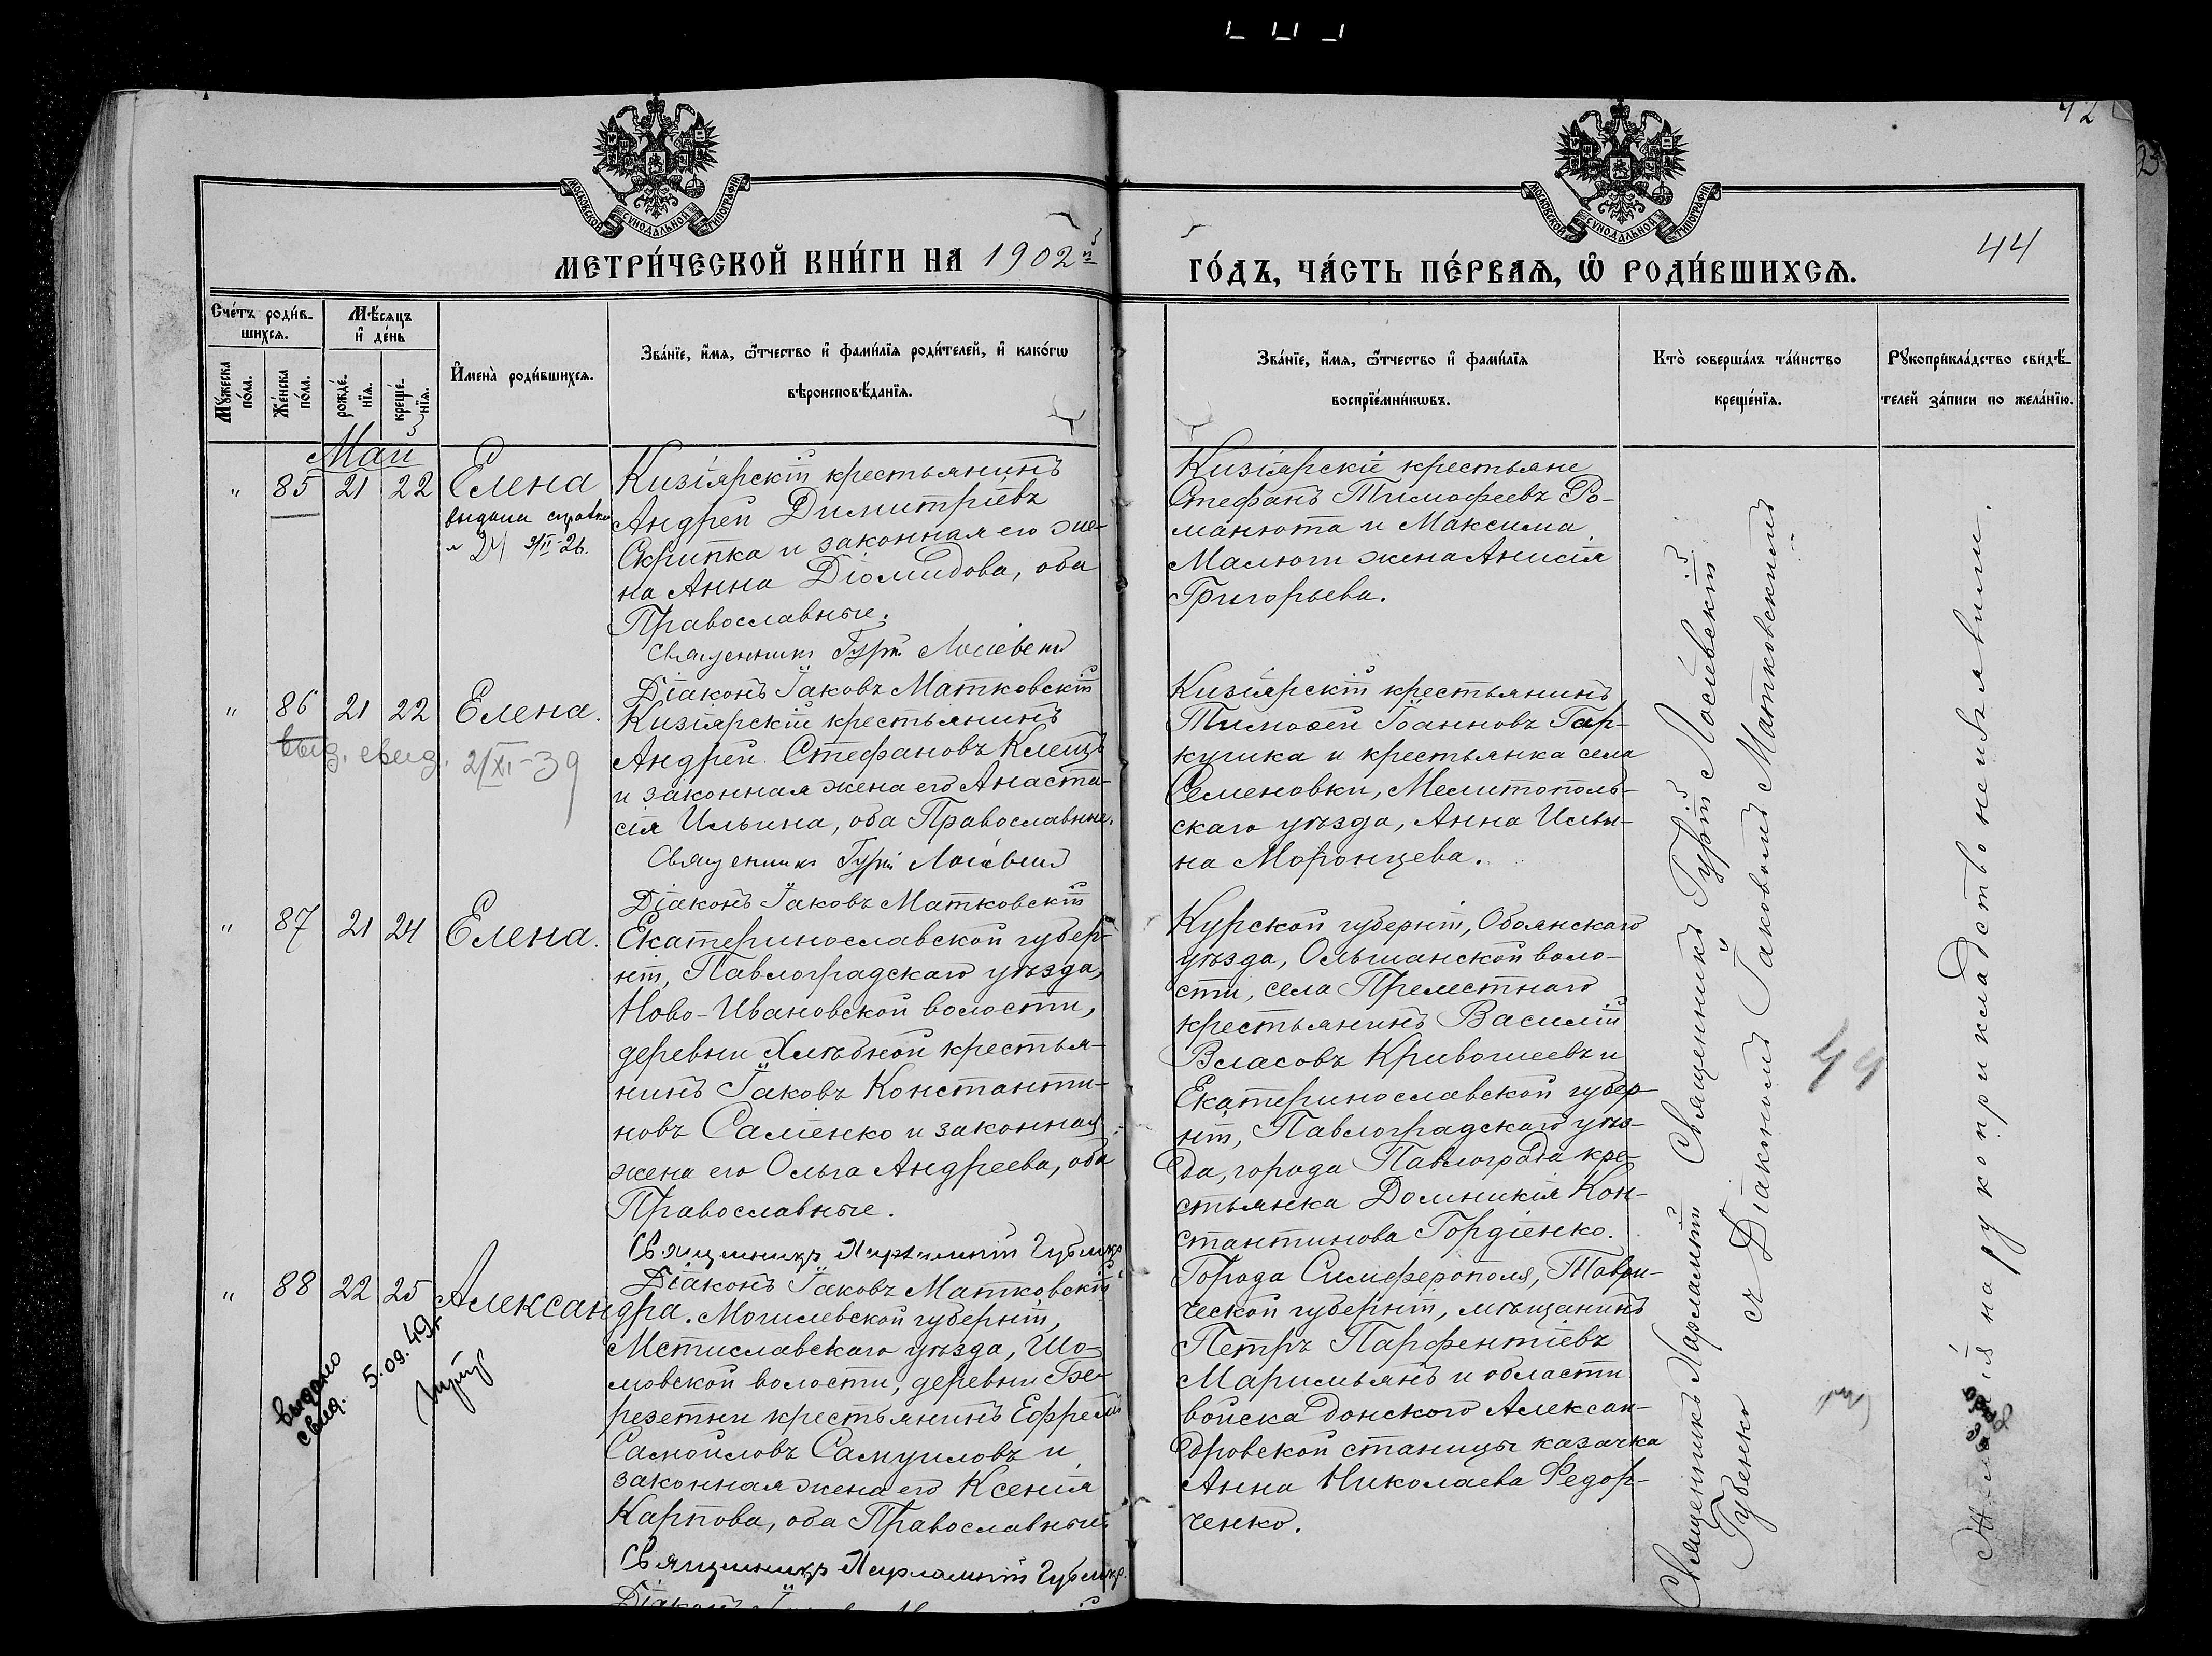 42
23
МОСКОВСКОЙ СУНОДАЛЬНОЙ ТИПОГРАФІИ
МОСКОВСКОЙ СУНОДАЛЬНОЙ ТИПОГРАФІИ
МЕТРИ́ЧЕСКОЙ КНИ́ГИ НА 1902й
ГО́ДЪ, ЧА́СТЬ ПЕ́РВАѦ, Ѡ҆ РОДИ́ВШИХСѦ.
44
Сче́тъ роди́в-
шихсѧ.
Мѣ́сѧцъ
и҆ де́нь
Мꙋ́жеска
по́ла.
Же́нска
по́ла.
рожде́-
нїѧ.
креще́-
нїѧ.
И҆мена̀ роди́вшихсѧ.
Зва́нїе, и҆́мѧ, ѻ҆́тчество и҆ фами́лїѧ роди́телей, и҆ како́гѡ
вѣроисповѣ́данїѧ.
Зва́нїе, и҆́мѧ, ѻ҆́тчество и҆ фами́лїѧ
воспрїе́мникѡвъ.
Кто̀ соверша́лъ та́инство
креще́нїѧ.
Рꙋкоприкла́дство свидѣ́-
телей за́писи по жела́нїю.
Май
" 85 21 22 Елена
выдана справка
№ 24 3/II-26.
Кизіярскій крестьянинъ
Андрей Димитріевъ
Скрипка и законная его же-
на Анна Діомидова, оба
Православные.
Священникъ Гурій Лосіевскій
Діаконъ Іаковъ Матковскій
Кизіярскіе крестьяне
Стефанъ Тимофеевъ Ро-
манюта и Максима
Малюты жена Анисія
Григорьева.
" 86 21 22 Елена.
выд. свид. 2/XI-39
Кизіярскій крестьянинъ
Андрей Стефановъ Клещъ
и законная жена его Анаста-
сія Ильина, оба Православные.
Священникъ Гурій Лосіевскій
Діаконъ Іаковъ Матковскій
Кизіярскій крестьянинъ
Тимоѳей Іоанновъ Гар-
кушка и крестьянка села
Семеновки, Мелитополь-
скаго уѣзда, Анна Ильи-
на Моронцева.
" 87 21 24 Елена.
Екатеринославской губер-
ніи, Павлоградскаго уѣзда,
Ново-Ивановской волости,
деревни Хлѣбной крестья-
нинъ Іаковъ Константи-
новъ Саліенко и законная
жена его Ольга Андреева, оба
Православные.
Священникъ Харлампій Губенко
Діаконъ Іаковъ Матковскій
Курской губерніи, Обоянскаго
уѣзда, Ольшанской воло-
сти, села Прелестнаго
крестьянинъ Василій
Власовъ Кривошеевъ и
Екатеринославской губер-
ніи, Павлоградскаго уѣз-
да, города Павлограда кре-
стьянка Домникія Кон-
стантинова Гордіенко.
" 88 22 25 Александра.
выдано
свид.
5.09.49г
Могилевской губерніи,
Мстиславскаго уѣзда, Шо-
мовской волости, деревни Бе-
резетни крестьянинъ Ефремъ
Самойловъ Самуиловъ и
законная жена его Ксенія
Карпова, оба Православные
Священникъ Харлампій Губенко.
Города Симферополя, Таври-
ческой губерніи, мѣщанинъ
Петръ Парфентіевъ
Марильянъ и области
войска донского Алексан-
дровской станицы казачка
Анна Николаева Федор-
ченко.
Священникъ Харлампій Губенко
Священникъ Гурій Лосіевскій
съ Діакономъ Іаковомъ Матковскимъ
44
Желанія на рукоприкладство не изъявили.